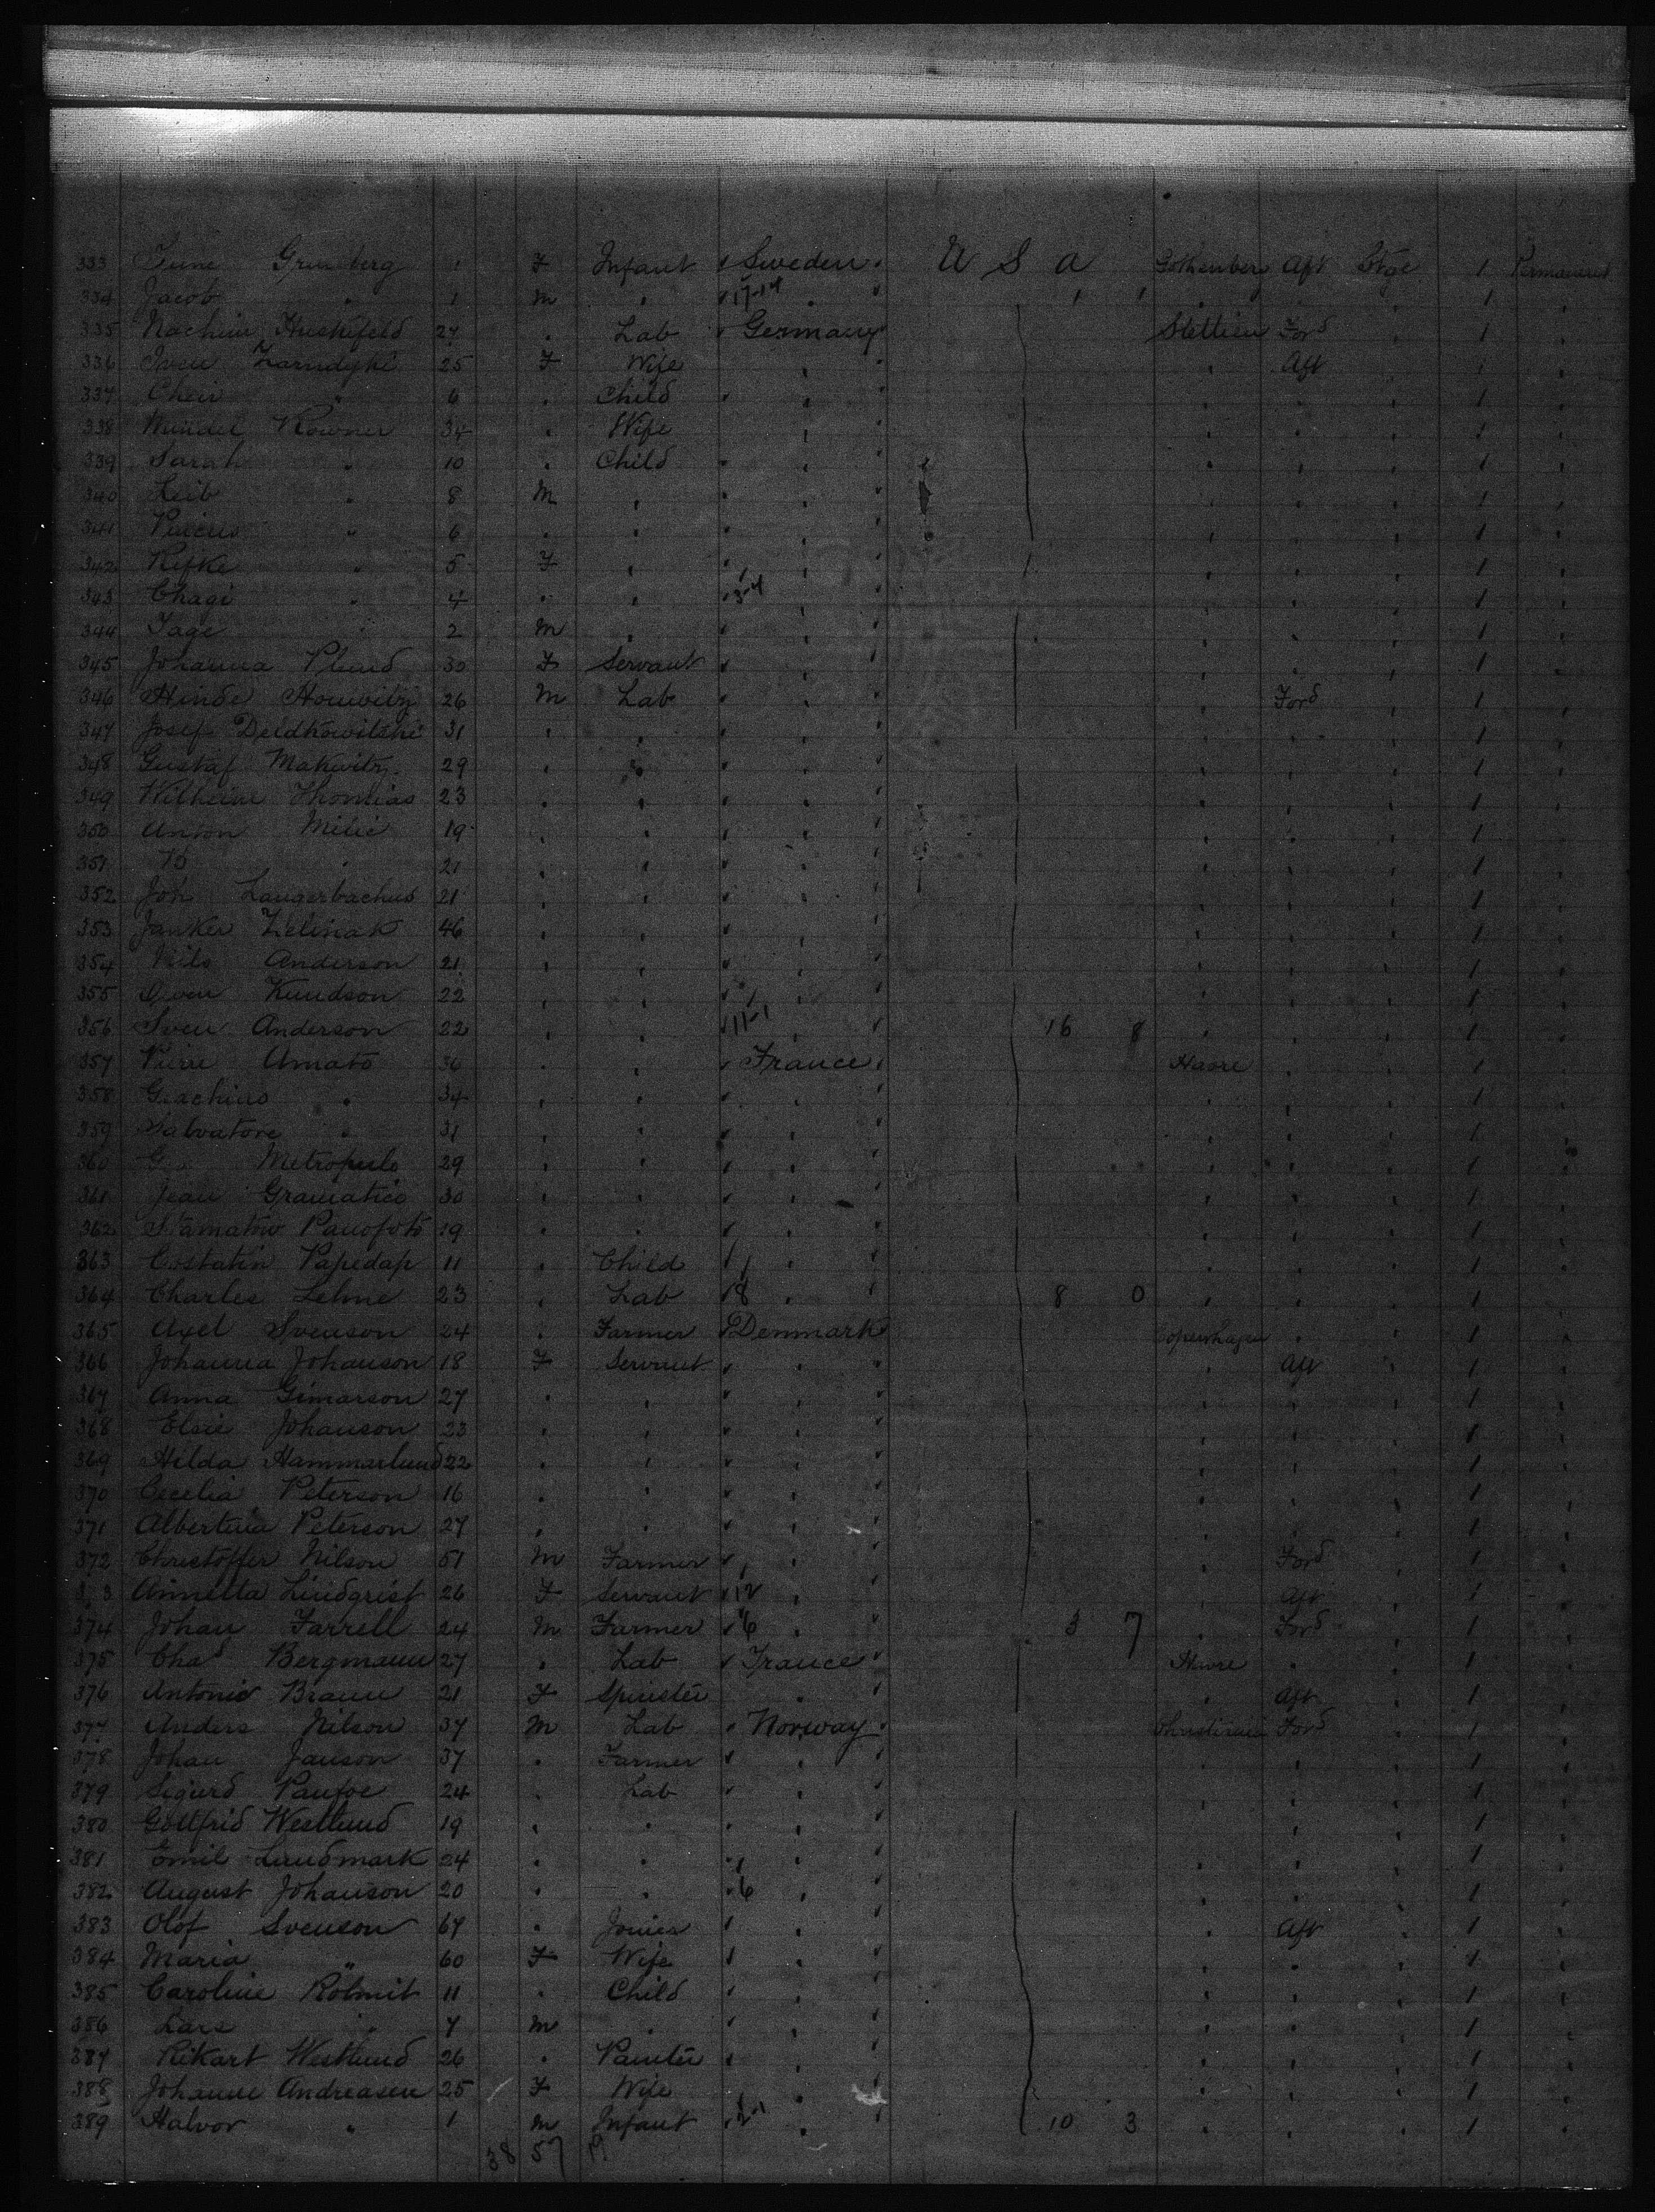 333 June Grunsberg 1 F Infant Sweden U S A Gothenberg Aft Stge 1 Permanent
334 Jacob " 1 M " 17-14 " 1 1 " " " 1 "
335 Nachim 27 " Lab Germany Stettien Ford " 1 "
336 Zarndyki 25 F Wife " " Aft " 1 "
337 Cheir " 6 " Child " " " " 1 "
338 Mindel Kowner 34 " Wife " " " " 1 "
339 Sarah " 10 " Child " " " " 1 "
340 Leib " 8 M " " " " " 1 "
341 " 6 " " " " " " 1 "
342 Rifke " 5 F " " " " " 1 "
343 Chagi " 4 " " 3-4 " " " " 1 "
344 Tage 2 M " " " " " 1 "
345 Johanna Plend 30 F Servant " " " " 1 "
346 Hinde Hourvitz 26 M Lab " " Ford " 1 "
347 Josef 31 " " " " " " 1 "
348 Gustaf Makwitz 29 " " " " " " 1 "
349 Wilhelm Thomias 23 " " " " " " 1 "
350 Anton Milic 19 " " " " " " 1 "
351 To " 21 " " " " " " 1 "
352 Joh Langerbachus 21 " " " " " " 1 "
353 Janker Zelinak 46 " " " " " " 1 "
354 Nils Anderson 21 " " " " " " 1 "
355 Knudson 22 " " " " " " 1 "
356 Sven Anderson 22 " " 11-1 " 16 8 " " " 1 "
357 Pierre Amato 36 " " France Havre " " 1 "
358 Giachino " 34 " " " " " " 1 "
359 Salvatore " 31 " " " " " " 1 "
360 G. Metropulo 29 " " " " " " 1 "
361 Jean Gramatico 30 " " " " " " 1 "
362 Stamatio Panofoto 19 " " " " " " 1 "
363 Costatin Papedap 11 " Child " " " " 1 "
364 Charles Lehne 23 " Lab 8 " 8 0 " " " 1 "
365 Axel Svenson 24 " Farmer Denmark Copenhagen " " 1 "
366 Johanna Johanson 18 F Servant " " Aft " 1 "
367 Anna Gimarson 27 " " " " " " 1 "
368 Elsie Johanson 23 " " " " " " 1 "
369 Hilda Hammarlund 22 " " " " " " 1 "
370 Cecelia Peterson 16 " " " " " " 1 "
371 Albertina Peterson 27 " " " " " " 1 "
372 Christoffer Nilson 51 M Farmer " " Ford " 1 "
3 3 Annetta Lindqrist 26 F Servant 12 " " Aft " 1 "
374 Johan Farrell 24 M Farmer 6 " 3 7 " Ford " 1 "
375 Chas Bergmann 27 " Lab France Havre " " 1 "
376 Antonio Braun 21 F Spinster " " Aft " 1 "
377 Anders Nilson 37 M Lab Norway Christiania Ford " 1 "
378 Johan Janson 37 " Farmer " " " " 1 "
379 Sigurd 24 " Lab " " " " 1 "
380 Gottfrid Westlund 19 " " " " " " 1 "
381 Emil Landmark 24 " " " " " " 1 "
382 August Johanson 20 " " 6 " " " " 1 "
383 Olof Svenson 67 " Joiner " " Aft " 1 "
384 Maria " 60 F Wife " " " " 1 "
385 Caroline Rolmit 11 " Child " " " " 1 "
386 Lars " 7 M " " " " " 1 "
387 Rikart Westlund 26 " Painter " " " " 1 "
388 Johanne Andreasen 25 F Wife " " " " 1 "
389 Halvor " 1 M Infant 2-1 " 10 3 " " " 1 "
38 57 19